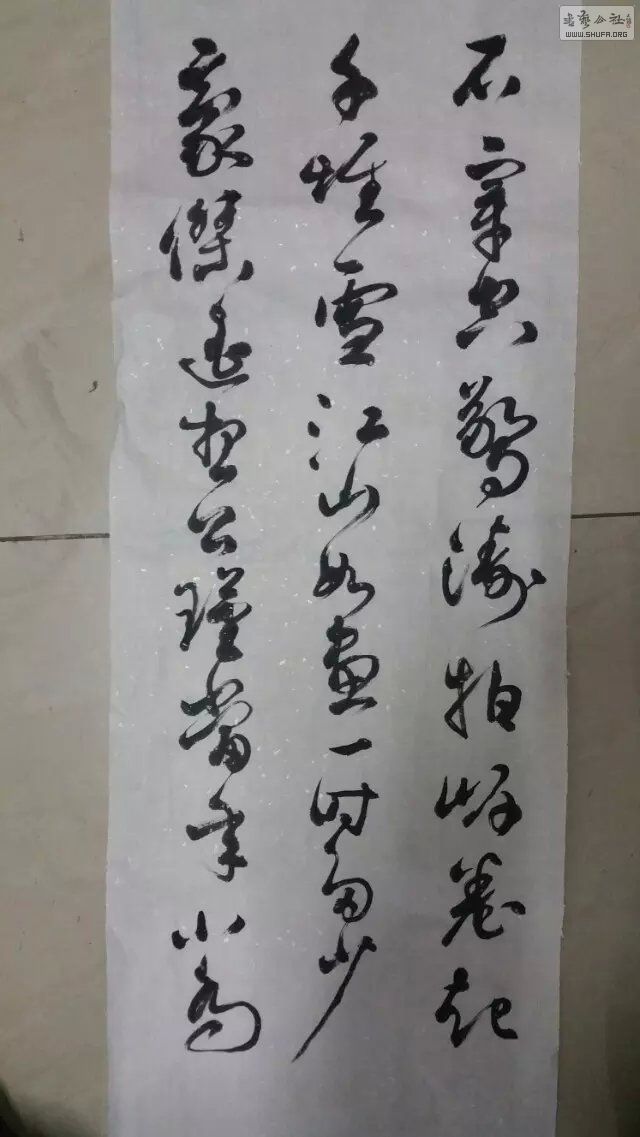 石穿空驚濤拍岸卷起
千堆雪江山如畫一時多少
豪傑遙想公瑾當年小喬
書藝公社
WWW.SHUFA.ORG